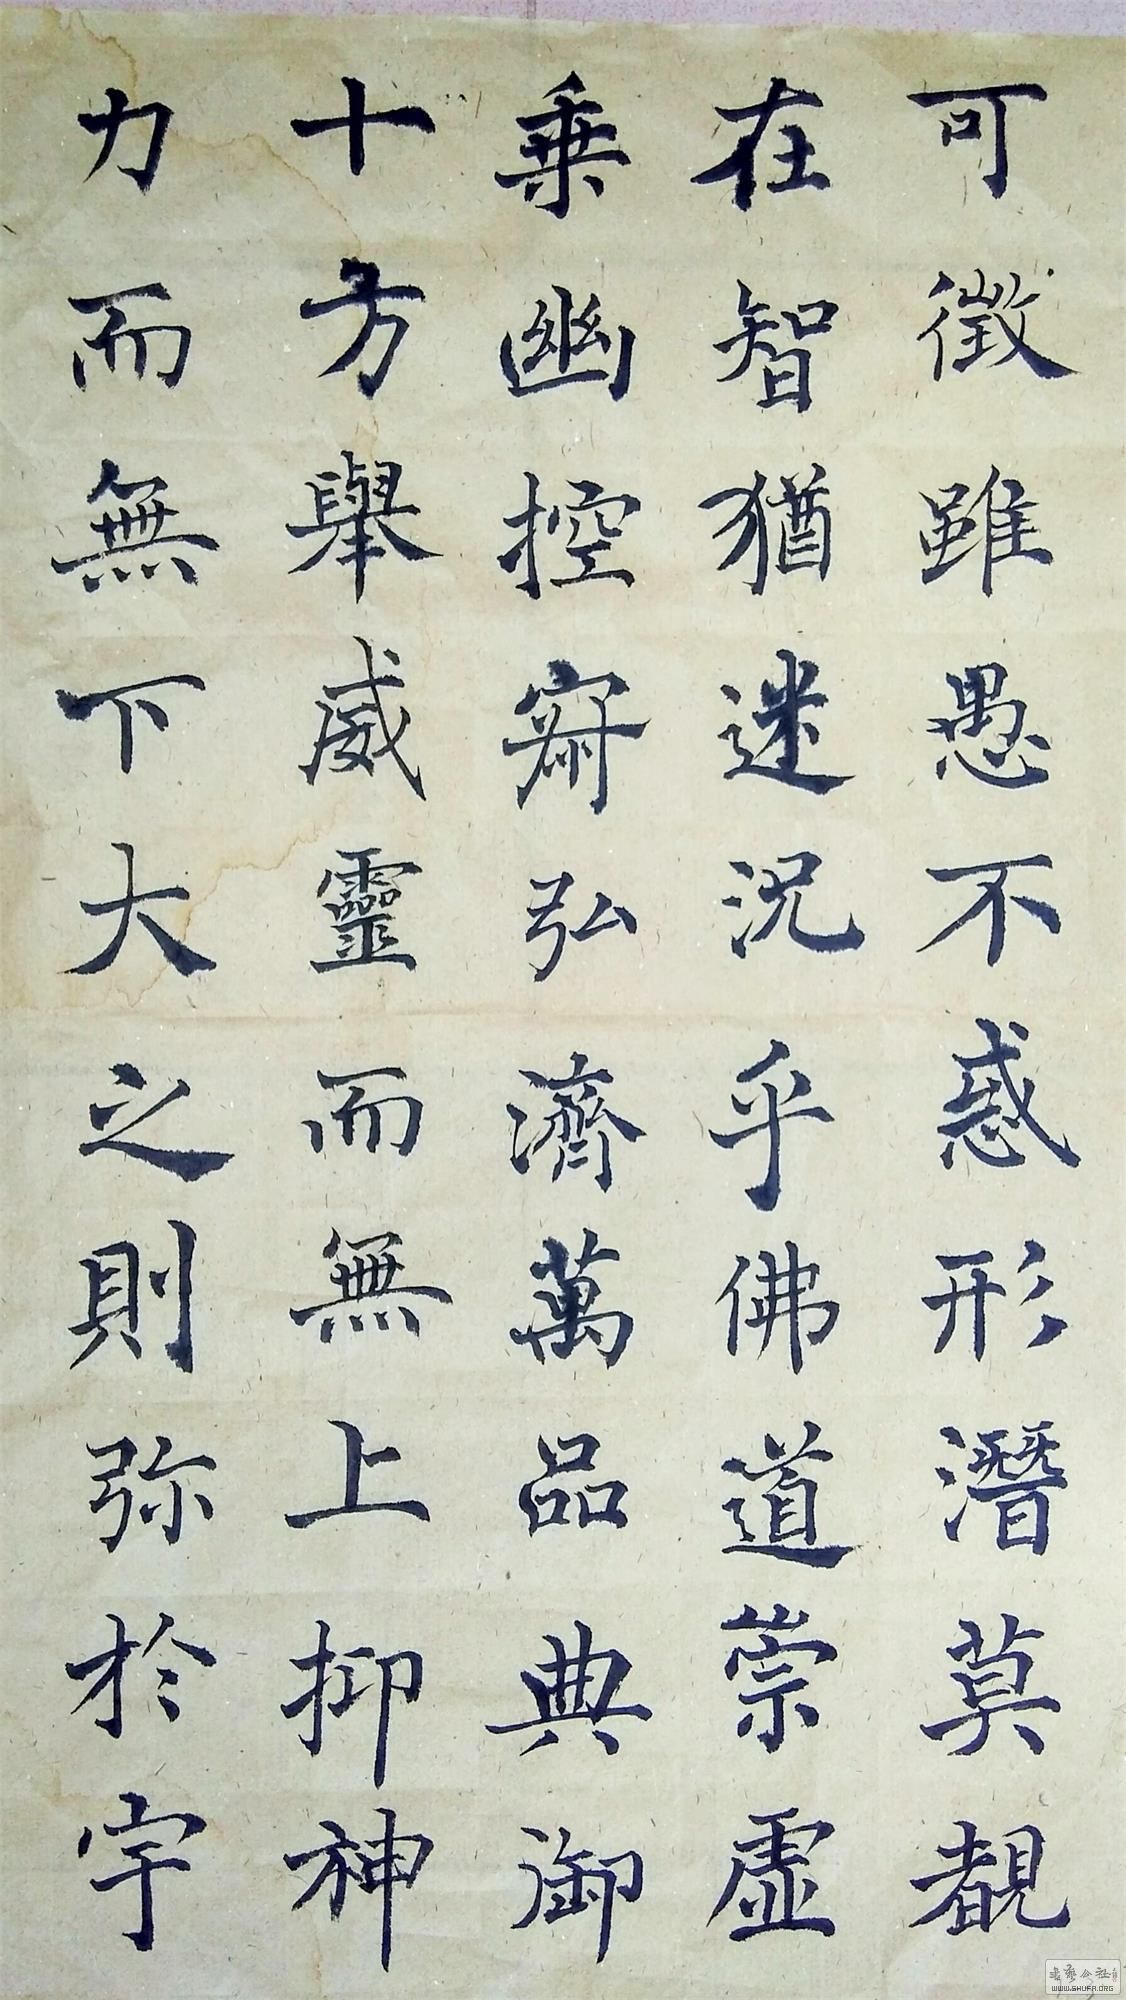 可徵雖愚不惑形潛莫覩
在智猶迷況乎佛道崇虛
乗幽控寂弘濟萬品典御
十方舉威靈而無上抑神
力而無下大之則弥於宇
WWW.SHUFA.ORG